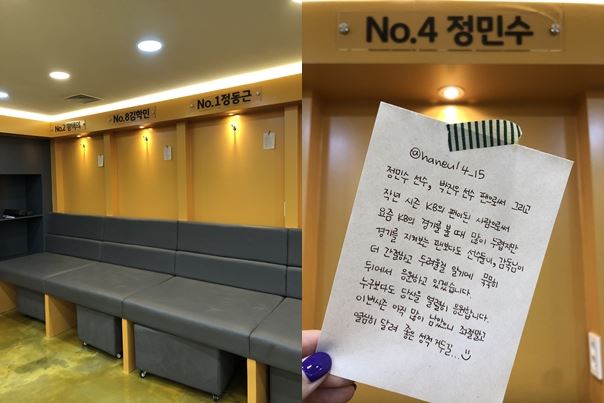 No.2 황택의
No.8 김학민
No.1 정동근
No.4 정민수
@haneul4_15
정민수 선수, 박진우 선수 팬으로써 그리고
작년 시즌 KB의 팬이된 사람으로써
요즘 KB의 경기를 볼 때 많이 두렵지만
경기를 지켜보는 팬보다도 선수들이, 감독님이
더 간절하고 두려울걸 알기에 묵묵히
뒤에서 응원하고 있겠습니다.
누구보다도 당신을 열렬히 응원합니다.
이번시즌 아직 많이 남았으니 좌절말고
열심히 달려 좋은 성적 거두길...